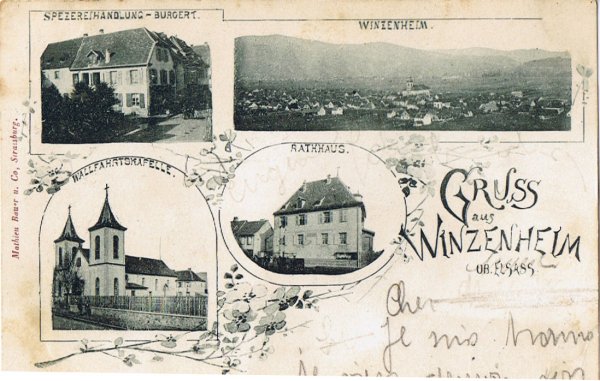 SPEZEREIHANDLUNG - BURGERT.
WINZENHEIM.
Mathieu Bauer u. Co, Strassburg.
WALLFAHRTSKAPELLE.
RATHHAUS.
GRUSS
aus
WINZENHEIM
OB. ELSASS
Cher
Je